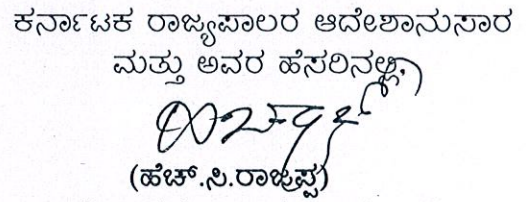 ಕರ್ನಾಟಕ ರಾಜ್ಯಪಾಲರ ಆದೇಶಾನುಸಾರ
ಮತ್ತು ಅವರ ಹೆಸರಿನಲ್ಲಿ,
(ಹೆಚ್.ಸಿ.ರಾಜಪ್ಪ)